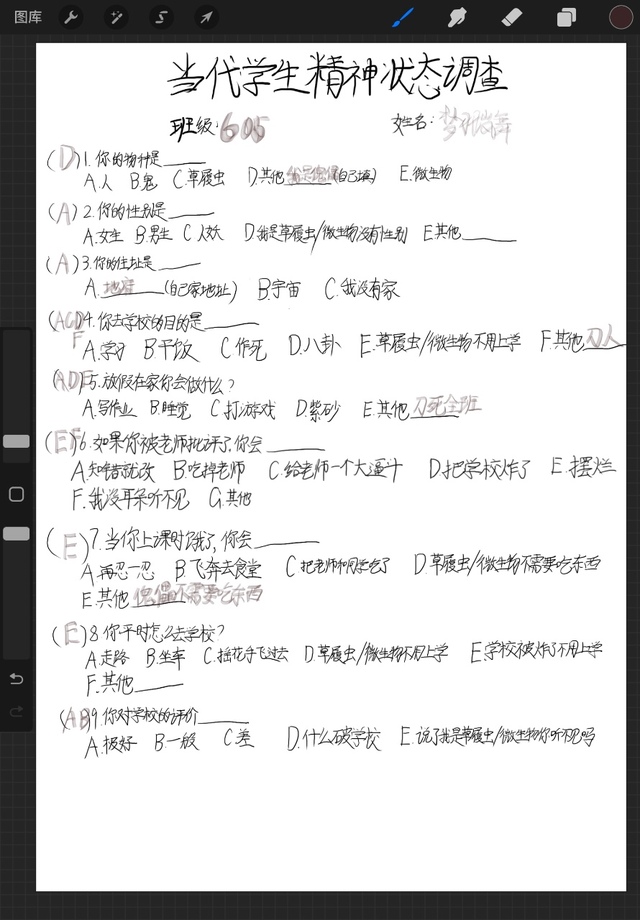 图库
当代学生精神状态调查
班级：605 姓名：梦
(D)1.你的物种是____
A.人 B.鬼 C.草履虫 D.其他我是傀儡(自己填) E.微生物
(A)2.你的性别是____
A.女生 B.男生 C.人妖 D.我是草履虫/微生物没有性别 E.其他____
(A)3.你的住址是____
A.地府(自己家地址) B.宇宙 C.我没有家
(ACDF)4.你去学校的目的是____
A.学习 B.干饭 C.作死 D.八卦 E.草履虫/微生物不用上学 F.其他刀人
(ADE)5.放假在家你会做什么？
A.写作业 B.睡觉 C.打游戏 D.紫砂 E.其他刀死全班
(EF)6.如果你被老师批评了,你会____
A.知错就改 B.吃掉老师 C.给老师一个大逼斗 D.把学校炸了 E.摆烂
F.我没耳朵听不见 G.其他
(E)7.当你上课时饿了,你会____
A.再忍一忍 B.飞奔去食堂 C.把老师和同学吃了 D.草履虫/微生物不需要吃东西
E.其他傀儡不需要吃东西
(E)8.你平时怎么去学校？
A.走路 B.坐车 C.摇花手飞过去 D.草履虫/微生物不用上学 E.学校被炸了不用上学
F.其他____
(AB)9.你对学校的评价____
A.极好 B.一般 C.差 D.什么破学校 E.说了我是草履虫/微生物你听不见吗